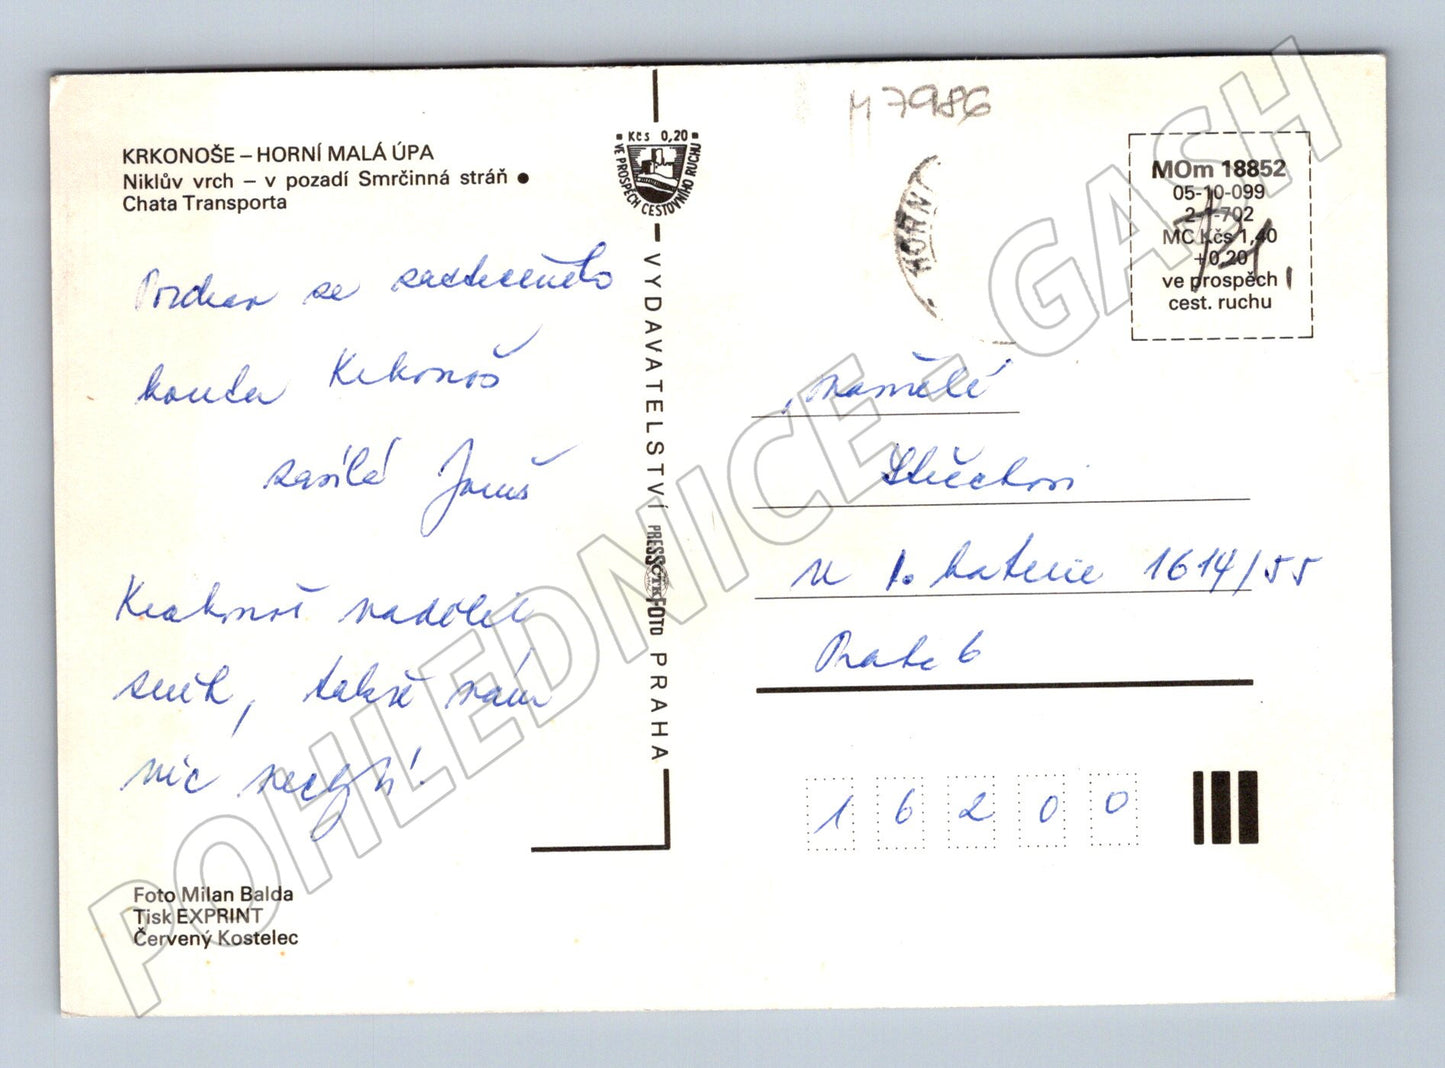 KRKONOŠE – HORNÍ MALÁ ÚPA
Niklův vrch – v pozadí Smrčinná stráň ●
Chata Transporta
Kčs 0,20
VE PROSPĚCH CESTOVNÍHO RUCHU
VYDAVATELSTVÍ PRESSFOTO PRAHA
ČTK
M 7986
HORNÍ
MOm 18852
05-10-099
702
MC Kčs 1,40
+0,20
ve prospěch
cest. ruchu
Pozdrav ze zasněženého
kouta Krkonoš
zasílá
Krakonoš nadělil
sníh, takže nám
nic nechybí.
1. baterie 1614/55
Praha 6
16200
Foto Milan Balda
Tisk EXPRINT
Červený Kostelec
POHLEDNICE - GASH